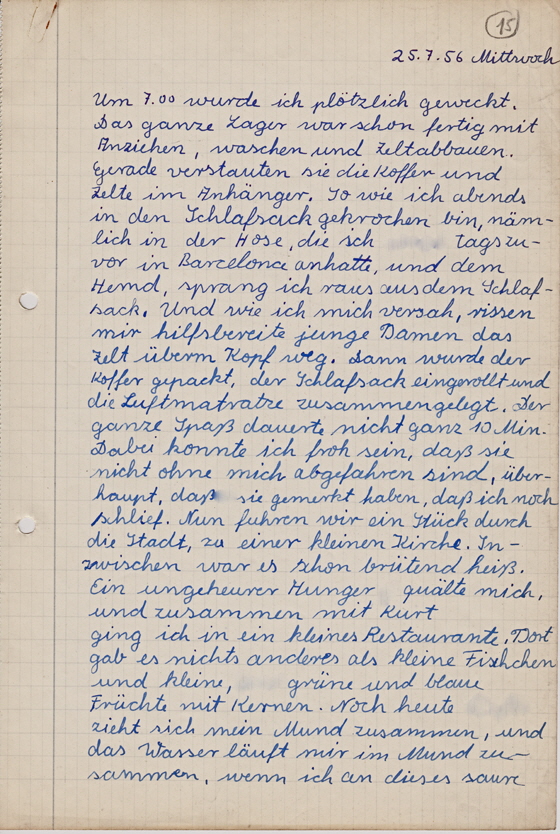 15
25.7.56 Mittwoch
Um 7.00 wurde ich plötzlich geweckt.
Das ganze Lager war schon fertig mit
Anziehen, waschen und Zeltabbauen.
Gerade verstauten sie die Koffer und
Zelte im Anhänger. So wie ich abends
in den Schlafsack gekrochen bin, näm-
lich in der Hose, die ich tagszu-
vor in Barcelona anhatte, und dem
Hemd, sprang ich raus aus dem Schlaf-
sack. Und wie ich mich versah, rissen
mir hilfsbereite junge Damen das
Zelt überm Kopf weg. Dann wurde der
Koffer gepackt, der Schlafsack eingerollt und
die Luftmatratze zusammengelegt. Der
ganze Spaß dauerte nicht ganz 10 Min.
Dabei konnte ich froh sein, daß sie
nicht ohne mich abgefahren sind, über-
haupt, daß sie gemerkt haben, daß ich noch
schlief. Nun fuhren wir ein Stück durch
die Stadt, zu einer kleinen Kirche. In-
zwischen war es schon brütend heiß.
Ein ungeheurer Hunger quälte mich,
und zusammen mit Kurt
ging ich in ein kleines Restaurante. Dort
gab es nichts anderes als kleine Fischchen
und kleine, grüne und blaue
Früchte mit Kernen. Noch heute
zieht sich mein Mund zusammen, und
das Wasser läuft mir im Mund zu-
sammen, wenn ich an dieses saure